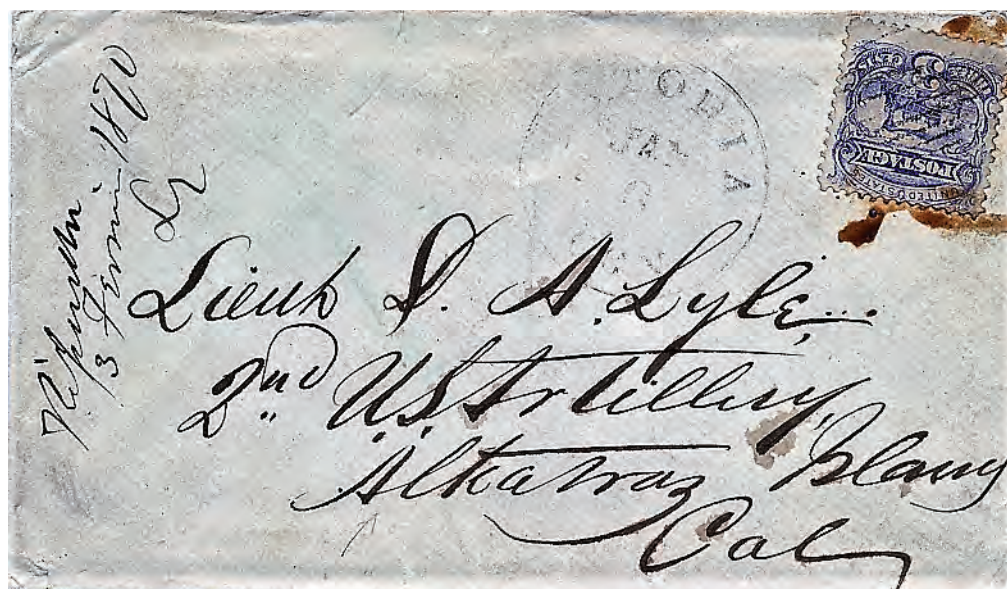 1870
TORIA
JAN
3
POSTAGE
UNITED STATES
Lieut D. A. Lyle
2nd U.S. Artillery,
Alkatraz Island
Cal